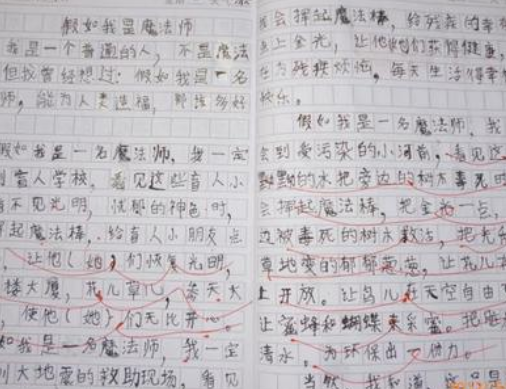 假如我是魔法师
我是一个普通的人，不是魔法
但我曾经想过：假如我是一名
师，能为人类造福，那该多好
假如我是一名魔法师，我一定
到盲人学校，看见这些盲人小
看不见光明，忧郁的神色时，
挥起魔法棒，给盲人小朋友点
，让他（她）们恢复光明，
楼大厦，花儿草儿，蓝天大
，使他（她）们无比开心。
如我是一名魔法师，我一定
到大地震的救助现场，看见
我会挥起魔法棒，给残疾的
点上金光，让他们获得健康，
在为残疾烦恼，每天生活得幸
快乐。
假如我是一名魔法师，我
会到受污染的小河前，看见这
黑的水把旁边的树木毒死时
会挥起魔法棒，把金光一点，
边被毒死的树木救活，把光秃
草地变的郁郁葱葱，让花儿
上开放。让鸟儿在天空自由
让蜜蜂和蝴蝶来采蜜。把
清水，为环保出一份力。
当然，我知道，这只是